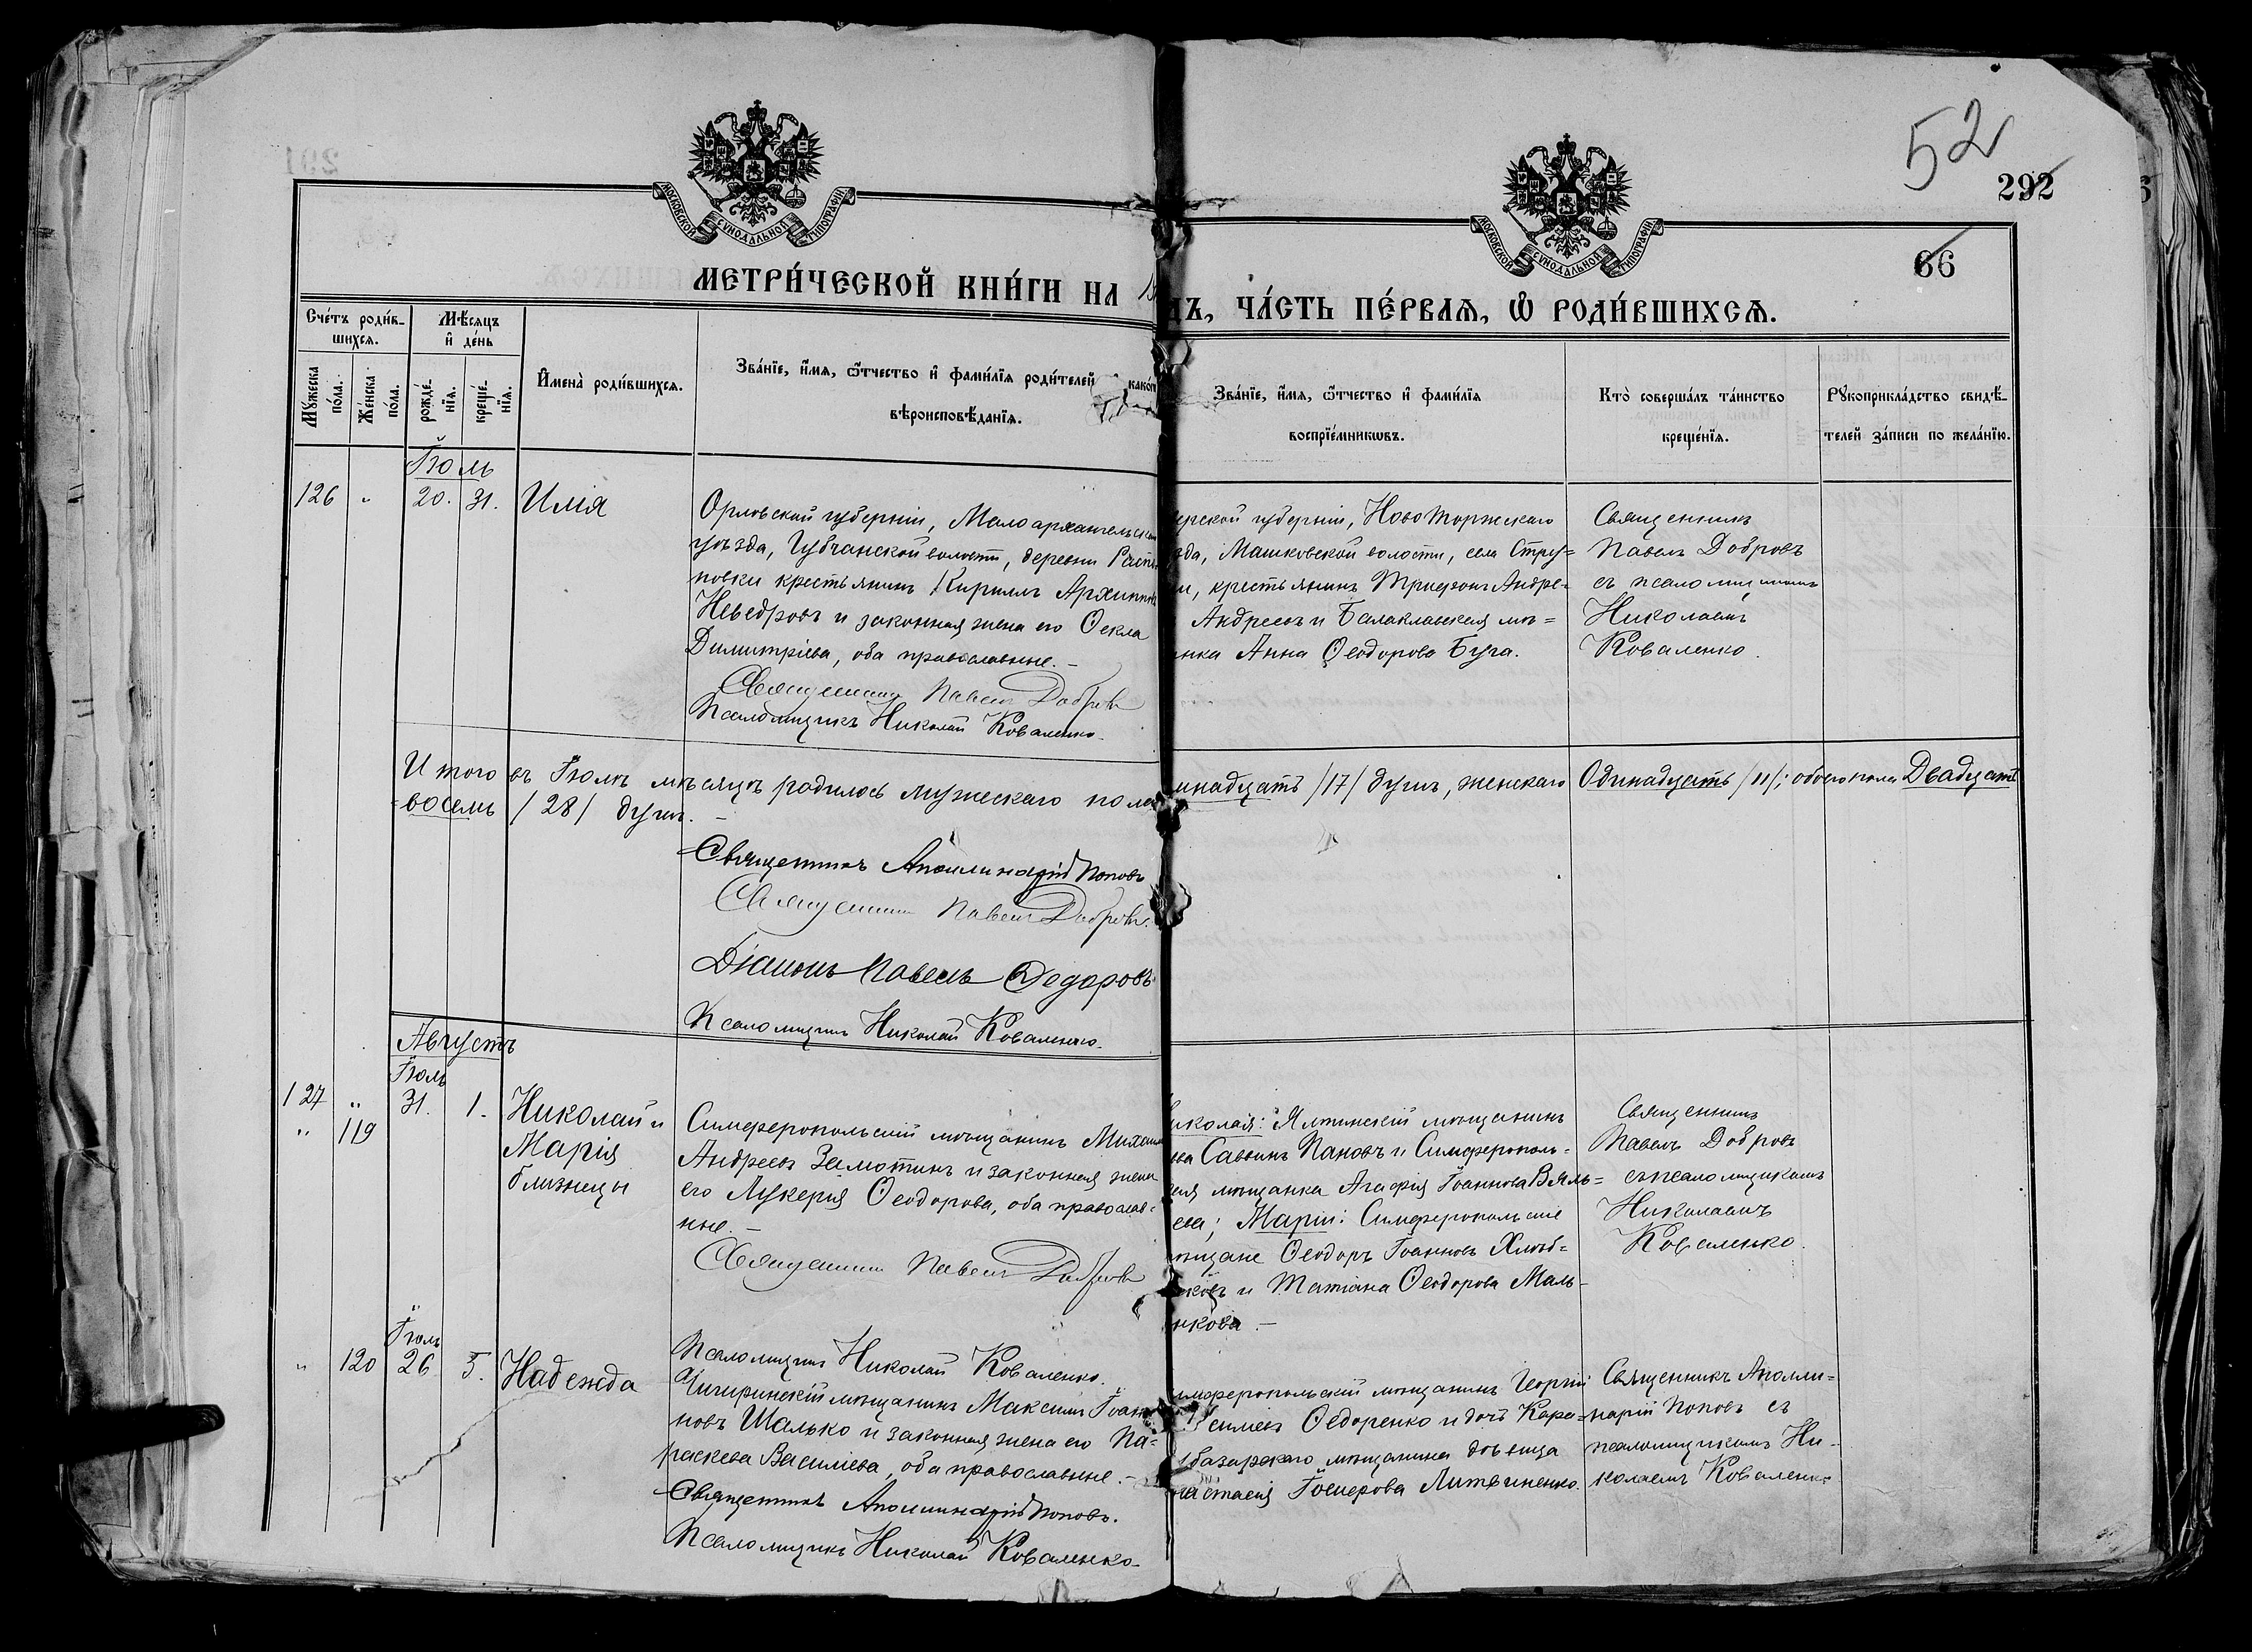 52
292
66
МОСКОВСКОЙ СУНОДАЛЬНОЙ ТИПОГРАФІИ
МОСКОВСКОЙ СУНОДАЛЬНОЙ ТИПОГРАФІИ
МЕТРИ́ЧЕСКОЙ КНИ́ГИ НА 18
ДЪ, ЧА́СТЬ ПЕ́РВАѦ, Ѽ РОДИ́ВШИХСѦ.
Сче́тъ роди́в-
шихсѧ.
Мѣ́сѧцъ
и҆ де́нь
Мꙋ́жеска
по́ла.
Же́нска
по́ла.
рожде́-
нїѧ.
креще́-
нїѧ.
И҆мена̀ роди́вшихсѧ.
Зва́нїе, и҆́мѧ, ѻ҆́тчество и҆ фами́лїѧ роди́телей
како́г
вѣроисповѣ́данїѧ.
Зва́нїе, и҆́мѧ, ѻ҆́тчество и҆ фами́лїѧ
воспрїе́мникѡвъ.
Кто̀ соверша́лъ та́инство
креще́нїѧ.
Рꙋкоприкла́дство свидѣ́-
телей за́писи по жела́нїю.
Іюль
126 " 20. 31. Илія
Орловской губерніи, Малоархангельска
уѣзда, Губчанской волости, деревни
новки крестьянинъ Кириллъ Архиппов
Неведровъ и законная жена его Ѳекла
Димитріева, оба православные. –
Священникъ Павелъ Добровъ
Псаломщикъ Николай Коваленко.
ерской губерніи, Новоторжскаго
зда, Машковской волости, села Стру=
и, крестьянинъ Трифонъ Андре=
Андреевъ и Балаклавская мѣ=
нка Анна Ѳеодорова Буга.
Священникъ
Павелъ Добровъ
съ псаломщикомъ
Николаемъ
Коваленко.
Итого въ Іюлѣ мѣсяцѣ родилось мужескаго пола
инадцать /17/ душъ, женскаго Одинадцать /11/; обоего пола Двадцать
=восемь /28/ душъ. –
Священникъ Аполлинарій Поповъ
Священникъ Павелъ Добровъ.
Діаконъ Павелъ Ѳедоровъ
Псаломщикъ Николай Коваленко.
Августъ
Іюль
127 " 31. 1. Николай и
" 119
Марія
близнецы
Симферопольскій мѣщанинъ Михаил
Андреевъ Замотинъ и законная жена
его Лукерія Ѳеодорова, оба православ=
ные. –
Священникъ Павелъ Добровъ
Псаломщикъ Николай Коваленко.
иколая: Ялтинскій мѣщанинъ
Саввинъ Пановъ и Симферополь=
кая мѣщанка Агафія Іоаннова Вяль=
ева; Маріи: Симферопольскіе
мѣщане Ѳеодоръ Іоанновъ Хлѣб=
никовъ и Татіана Ѳеодорова Маль-
нкова. –
Священникъ
Павелъ Добровъ
съ псаломщикомъ
Николаемъ
Коваленко.
Іюль
" 120 26. 5. Надежда
Чигиринскій мѣщанинъ Максимъ Іоан
новъ Шалько и законная жена его Па=
раскева Василіева, оба православные. –
Священникъ Аполлинарій Поповъ.
Псаломщикъ Николай Коваленко
имферопольскій мѣщанинъ Георгій
Ѳедоренко и дочь Кара=
базарскаго мѣщанина дѣвица
настасія Іосифова Литвиненко.
Священникъ Аполли=
нарій Поповъ съ
псаломщикомъ Ни-
колаемъ Коваленко